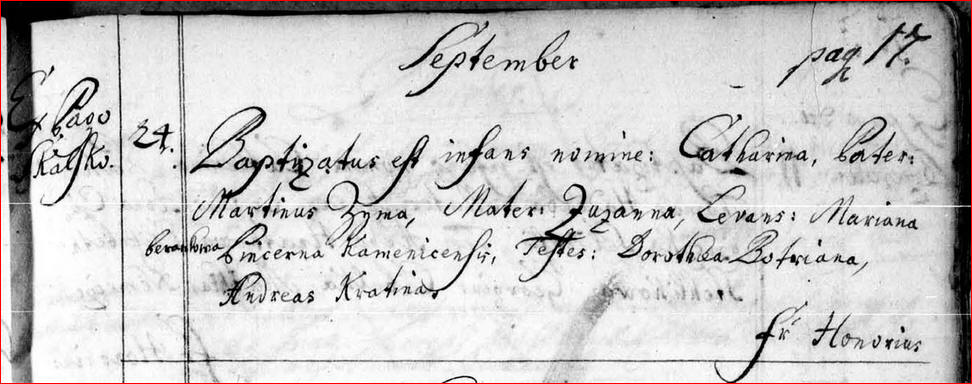 September
pag 17.
Ex Pago
Skalsko.
24.
Baptizatus est infans nomine: Catharina, Pater:
Martinus Zyma, Mater: Zuzanna, Levans: Mariana
berankowa Pincerna Kamenicensis, Testes: Dorothea Botriana,
Andreas Kratina.
Fr Honorius